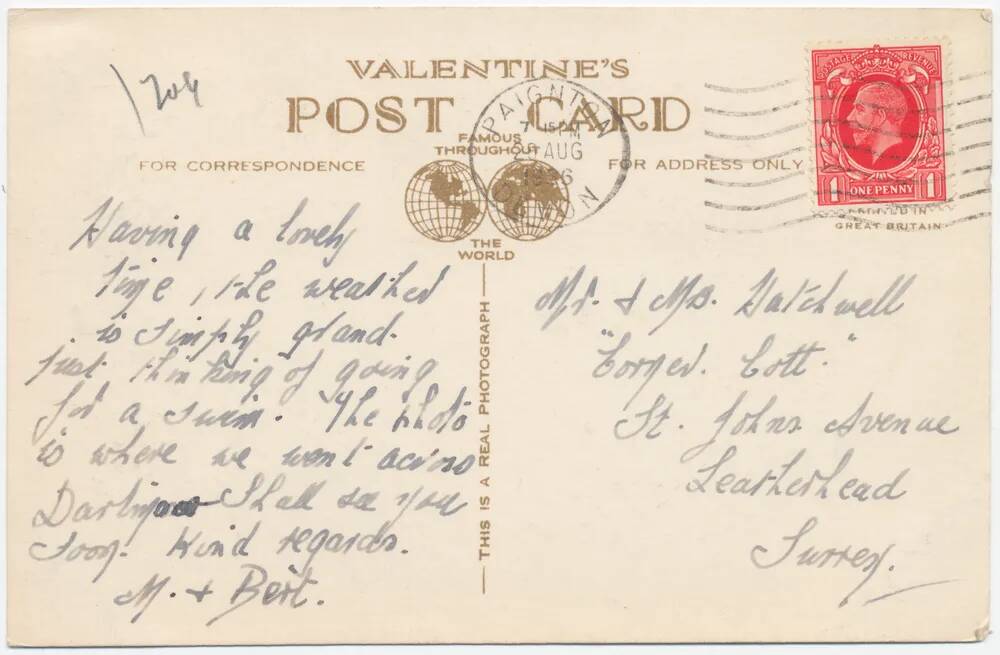 1204
VALENTINE'S
POST CARD
FAMOUS
THROUGHOUT
THE
WORLD
FOR CORRESPONDENCE
FOR ADDRESS ONLY
PAIGNTON
7 15 PM
AUG
1936
DEVON
POSTAGE REVENUE
1 ONE PENNY 1
PRINTED IN
GREAT BRITAIN
THIS IS A REAL PHOTOGRAPH
Having a lovely
time, the weather
is simply grand.
just thinking of going
for a swim. The photo
is where we went across
Dartmoor Shall see you
soon. Kind regards.
M. + Bert.
Mr. & Mrs. Hatchwell
Cott."
St. Johns Avenue
Leatherhead
Surrey.